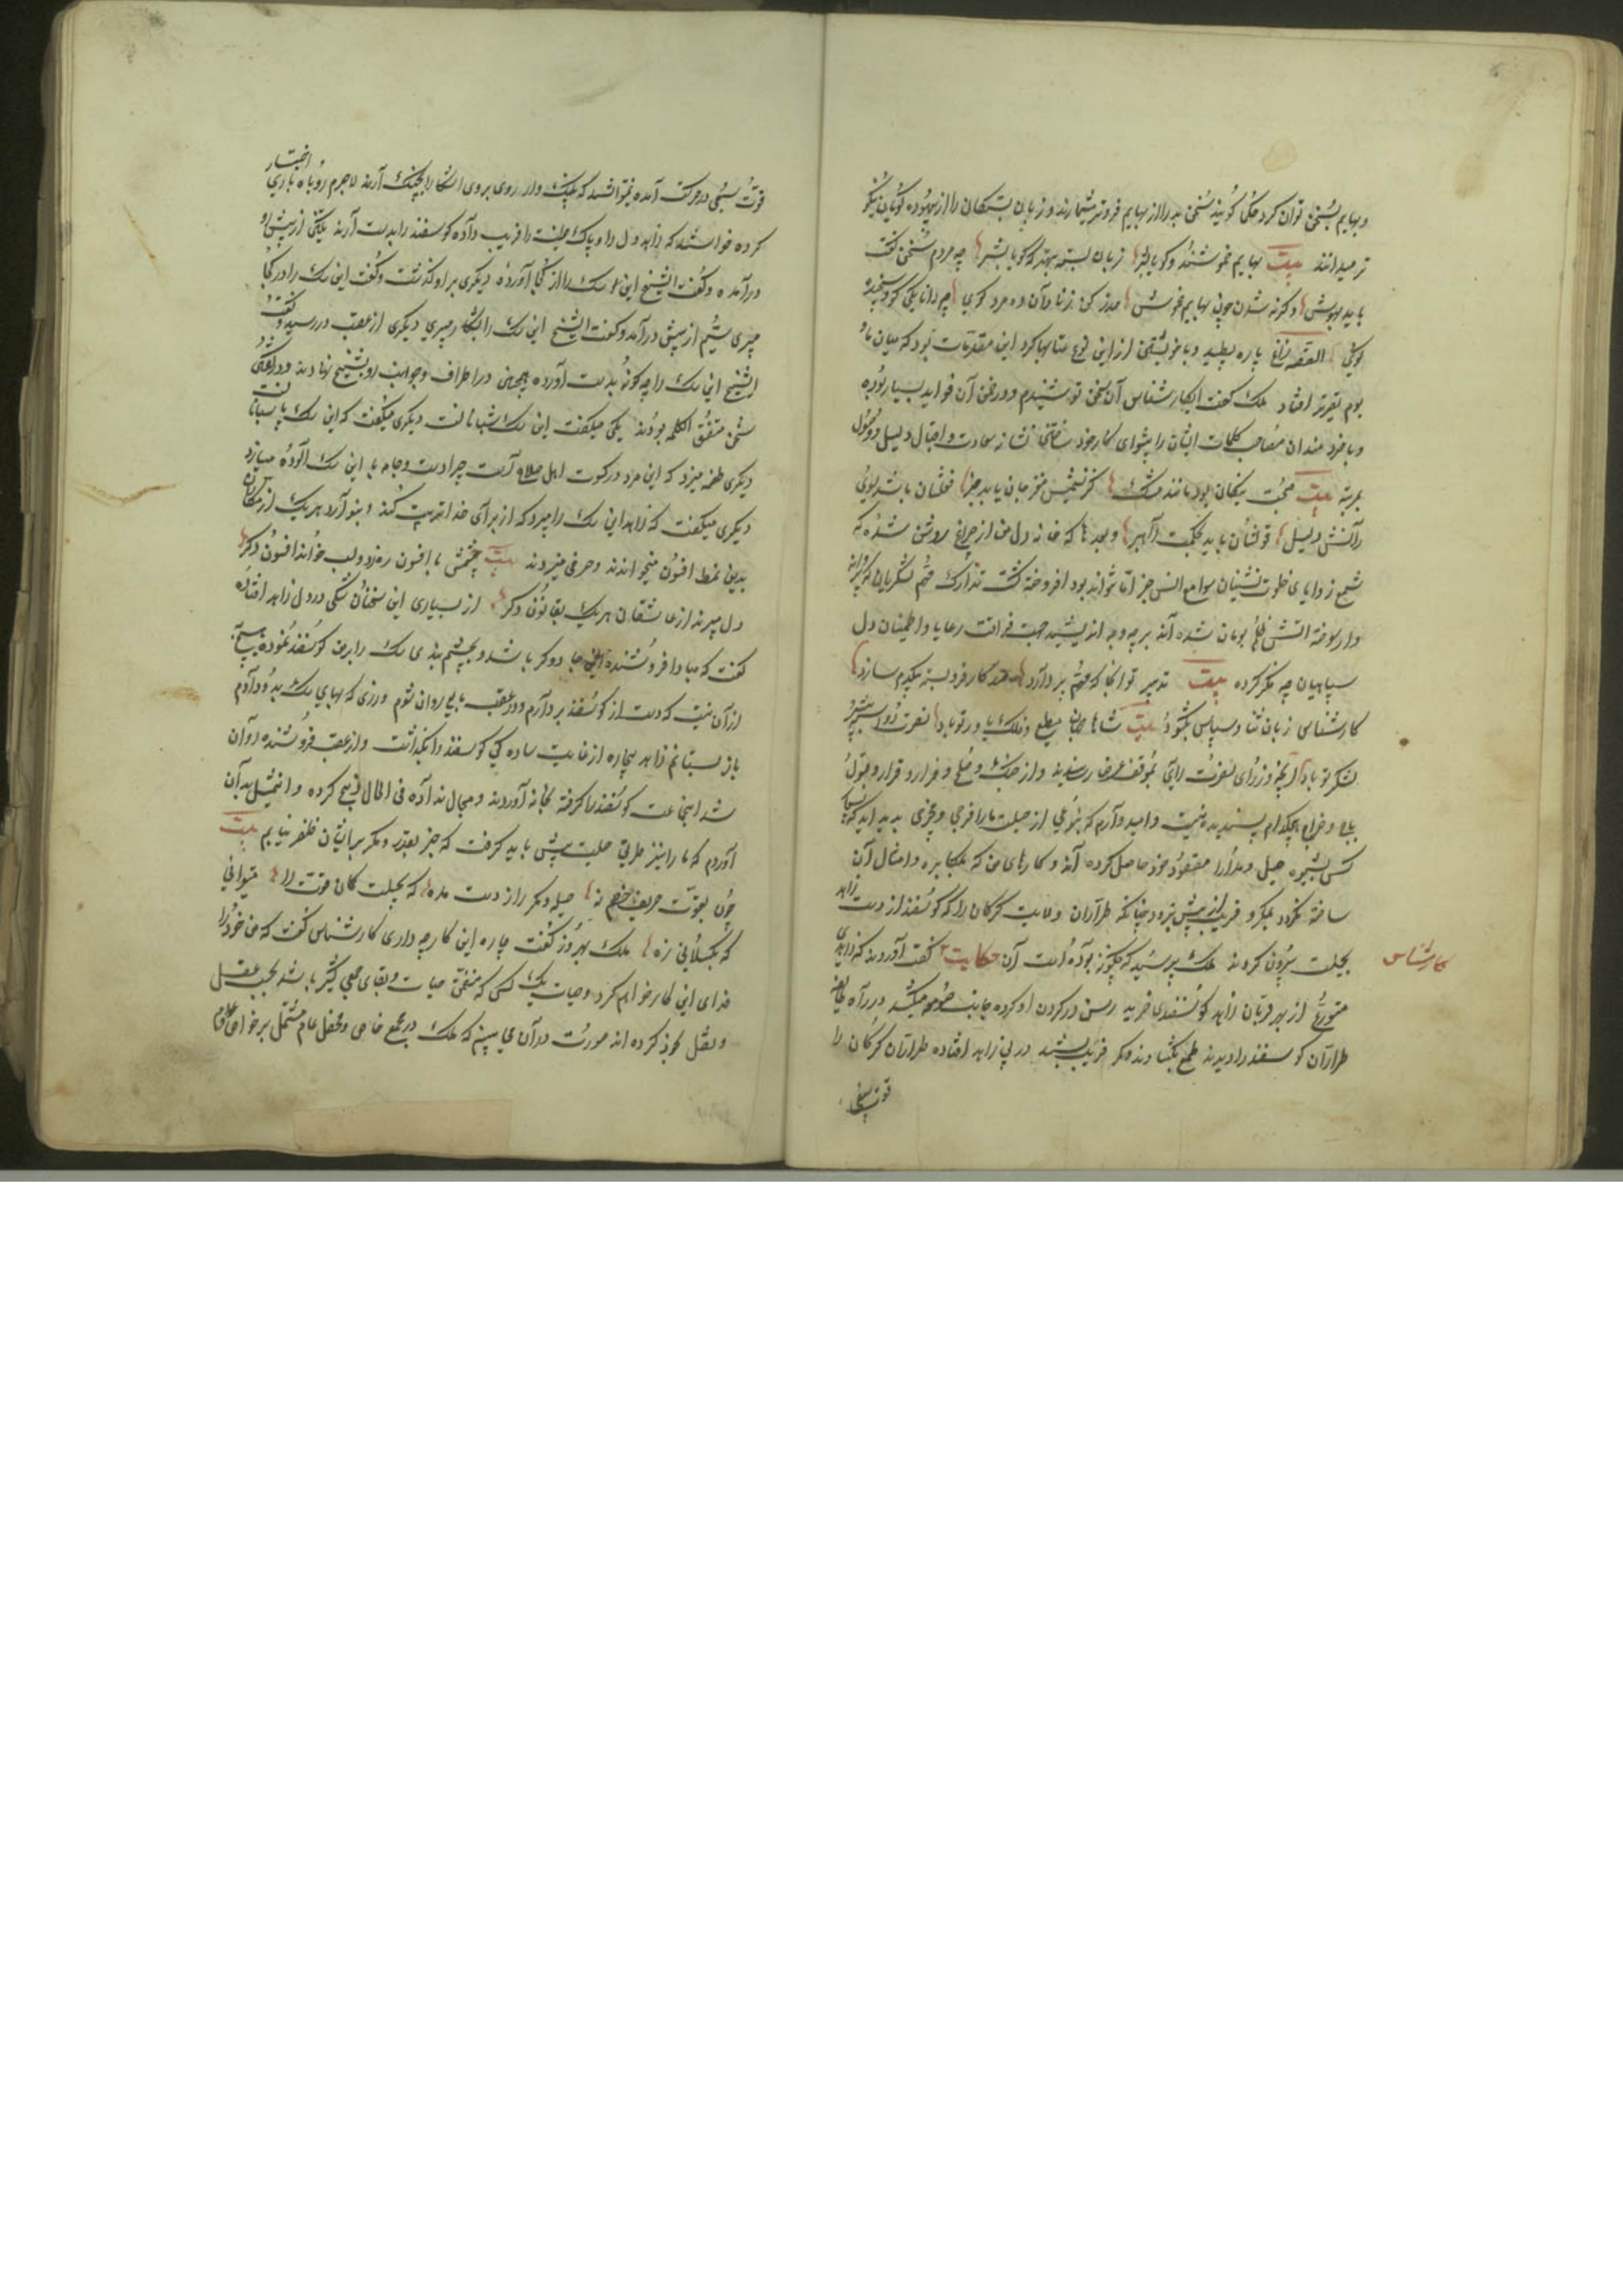 و بهایم بسخن توان کرد حکما گویند سخن بد را از بهایم فروتر شمارند و زبان بستگان را از بیهوده گویان نیکو
تر میدانند بیت بهایم خموشند و گویا بشر زبان بسته بهتر که گویا بشر چو مردم سخن گفت
باید بهوش وگرنه شدن چون بهایم خموش حذر کن ز نادان ده مرده گوی چو دانا یکی گوی و سنجیده
گوی القصه زاغ پاره بطپید و با خویشتن از این نوع عتابها کرد این مقدمات بود که میان ما و
بوم تقریر افتاد ملک گفت ای کارشناس آن سخن تو شنیدم و در ضمن آن فواید بسیار بود
و با خردمندان مصاحب کلمات ایشان را پیشوای کار خود ساختن نشانه سعادت و اقبال و دلیل وصول
بمرتبه بیت صحبت نیکان بود مانند مشک کز نسیمش مغز جان یابد خبر فعلشان باشد بسوی
دانش دلیل قولشان باید بحکمت راهبر و بعدها که خانه دل من از چراغ روشن شده که
شمع زوایای خلوت نشینان صوامع انس جز آن نتواند بود افروخته گشت تدارک مهم لشکریان که پروانه
وار سوخته اتش ظلم بومان شده اند بر چه وجه اندیشید جهت فراغت رعایا و اطمینان دل
سپاهیان چه فکر کرده بیت تدبیر تو انجا که مهم پردازد صد کار فروبسته بیکدم سازد
کارشناس زبان ثنا و سپاس بگشود بیت شاها جهان مطیع و فلک یاور تو باد نصرت
لشکر تو باد آنچه وزرای نصرت رای بموقف عرض رسانیدند از جنگ و صلح و فرار و قرار و قبول
باج و خراج هیچکدام پسندیده نیست و امید وارم که بنوعی از حیلت ما را فرجی و مخرجی پدید اید که بسیار
کس بشیوه حیل و مدارا مقصود خود حاصل کرده اند و کارهای من که بمکابره و امثال آن
ساخته نگردد بمکر و فریب از پیش برود چنانکه طراران ولایت گرگان را که گوسفند از دست زاهد
بحیلت بیرون کردند ملک پرسید که چگونه بوده است آن حکایت گفت آوردند که زاهدی
کارشناس
متورع از بهر قربان زاهد گوسفندی خرید رسن در گردن او کرده جانب صومعه میکشید در راه طایفه
طراران گوسفند را دیدند طمع بگشادند و کمر فریب بستند در پی زاهد افتاده طراران گرگان را
قوت سبعی
قوت سبعی در حرکت آمده نتوانستند که پلنگ وار روی بروی ان شکار را بچنگ آرند لاجرم روباه بازی اختیار
کرده خواستند که زاهد دل داده پاک طینت را فریب داده گوسفند را بدست آرند یک تن از پیش او
درآمده و گفت ایشیخ این سک را از کجا آورده دیگری بر او گذشت و گفت این سک را در کجا
میبری سیم از پیش درآمد و گفت ایشیخ این سک را بشکار میبری دیگری از عقب در رسید و گفت
ایشیخ این سک را چگونه بدست آورده همچنین در اطراف و جوانب رو بشیخ نهادند و در
سخن متفق الکلمه بودند یکی میگفت این سک شبانانست دیگری میگفت که این سک پاسبانانست
دیگری طعنه میزد که این مرد در کسوت اهل صلاح است چرا دست و جامه با این سک آلوده میسازد
دیگری میگفت که زاهد این سک را میبرد که از برای خدا تربیت کند و بنوازد هریک از
بدین نمط افسون میخواندند و حرفی میزدند بیت چشمش بافسون ره زد و لب خواند افسون دگر
دل میبرند از عاشقان هریک بقانون دگر از بسیاری این سخنان شکی در دل زاهد افتاده
گفت که مبادا فروشنده این جادوگر باشد و بچشم بندی سک را بر من گوسفند نموده هیچ به
از آن نیست که دست از گوسفند بردارم و در عقب بایع روان شوم و زری که بهای سک بدو دادم
باز ستانم زاهد بیچاره از غایت ساده دلی گوسفند را بگذاشت و از عقب فروشنده روان
شد اینجماعت گوسفند را گرفته بخانه آوردند و مجال نداده فی الحال ذبح کرده و این مثل بدان
آوردم که ما را نیز طریق حیلت پیش باید گرفت که جز بغدر و مکر بر ایشان ظفر نیابیم بیت
چون بقوت حریف خصم نه حیله و مکر را ز دست مده که بحیلت کمان قوت را میتوانی
که بگسلانی زه ملک بهروز گفت چاره این کار چه داری کارشناس گفت که من خود را
فدای این کار خواهم کرد و حیات یک کس که متضمن حیات و بقای جمعی کثیر باشد بحسب عقل
و نقل تجویز کرده اند صورت در آن می بینم که ملک در مجمع خاص و محفل عام مشتمل بر خواص و عوام